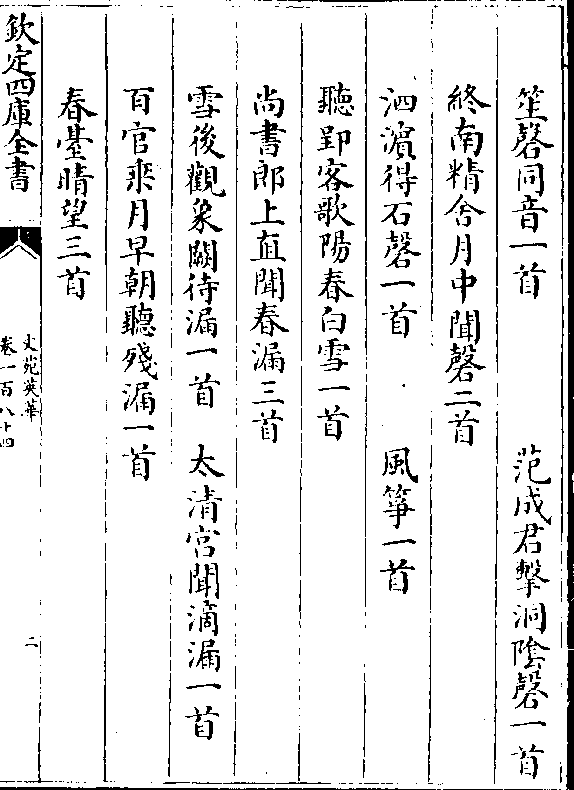 笙磬同音一首　范成君擊洞陰磬一首
終南精舍月中聞磬二首
泗濵得石磬一首　風箏一首
聽郢客歌陽春白雪一首
尚書郎上直聞春漏三首
雪後觀象闕待漏一首　太清宫聞滴漏一首
百官乘月早朝聽殘漏一首
春臺晴望三首
欽定四庫全書
文苑英華
卷一百八十四
二